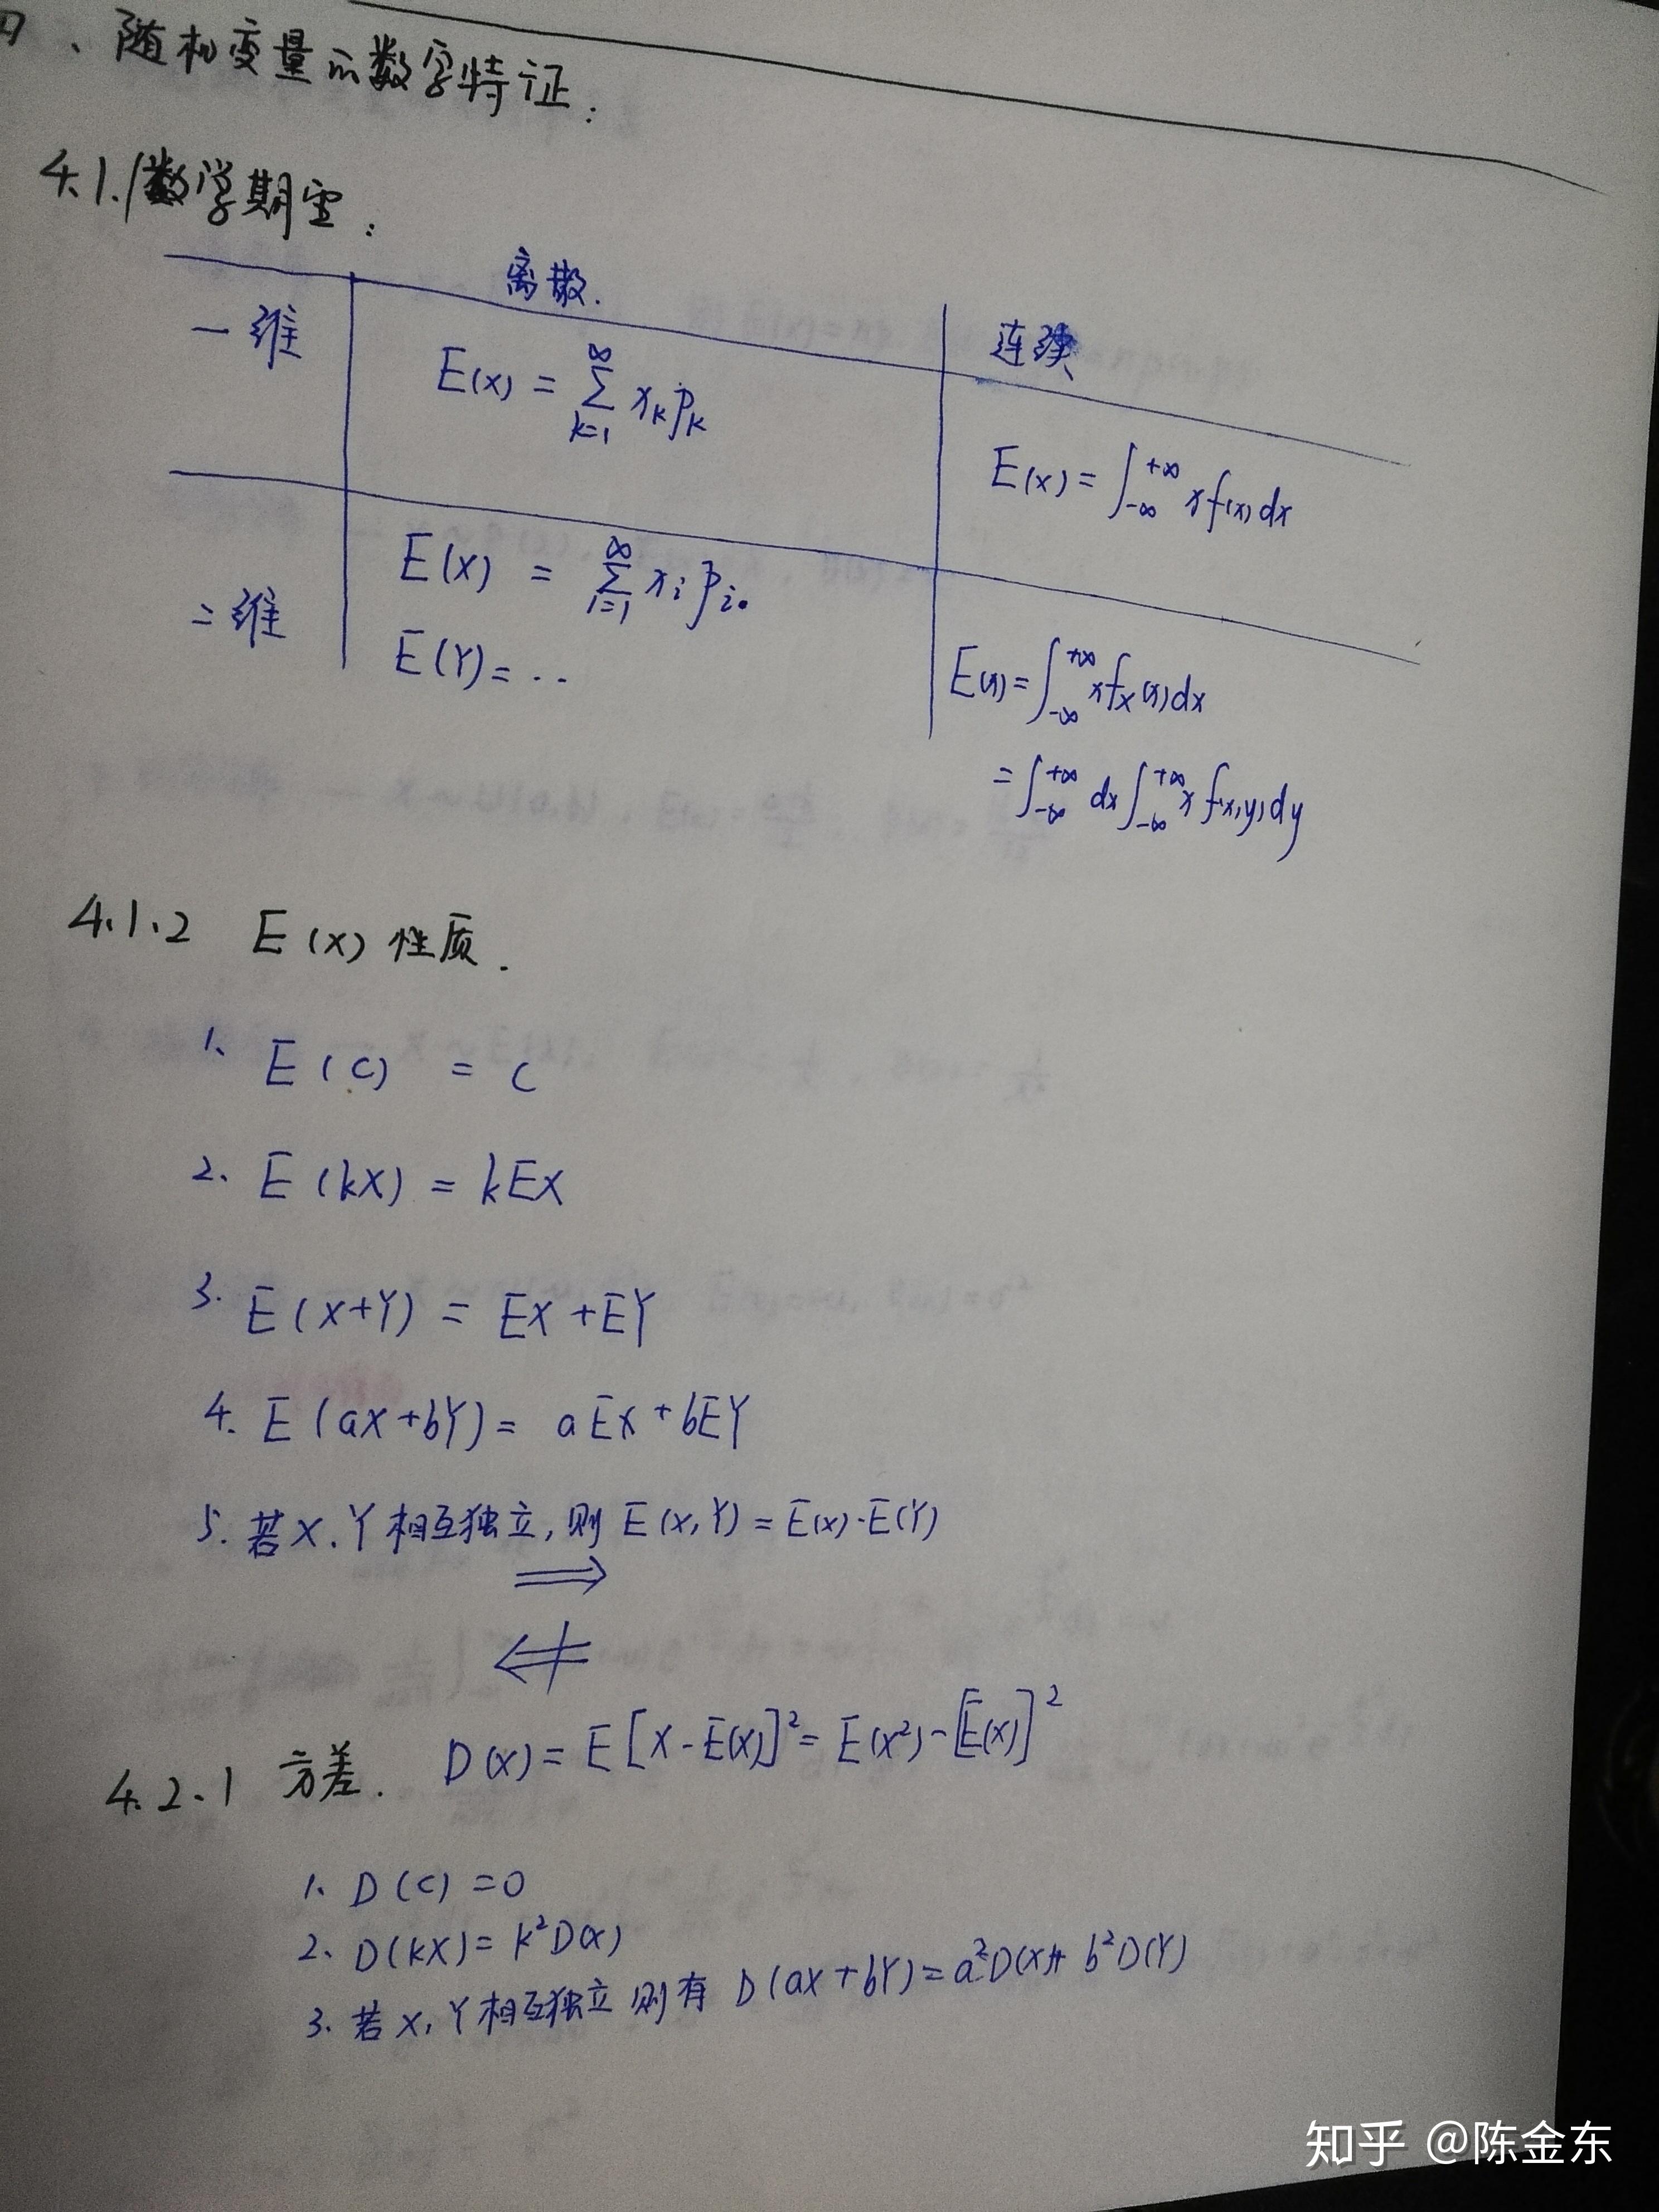 四、随机变量的数字特征:
4.1.1数学期望:
离散. 连续
一维 E(x) = ∑_{k=1}^{∞} x_k p_k E(x) = ∫_{-∞}^{+∞} x f(x) dx
二维 E(X) = ∑_{i=1}^{∞} x_i p_{i·} E(x) = ∫_{-∞}^{+∞} x f_X(x) dx
E(Y) = ‥ = ∫_{-∞}^{+∞} dx ∫_{-∞}^{+∞} x f(x,y) dy
4.1.2 E(X) 性质.
1、 E(C) = C
2、 E(kX) = kEX
3. E(X+Y) = EX+EY
4. E(aX+bY) = aEX+bEY
5. 若X、Y相互独立,则 E(X,Y) = E(X)·E(Y)
⟹
⟸̸
4.2.1 方差. D(X) = E[X-E(X)]² = E(X²)-[E(X)]²
1、 D(C) = 0
2、 D(kX) = k²D(X)
3. 若X,Y相互独立则有 D(aX+bY) = a²D(X)+b²D(Y)
知乎 @陈金东